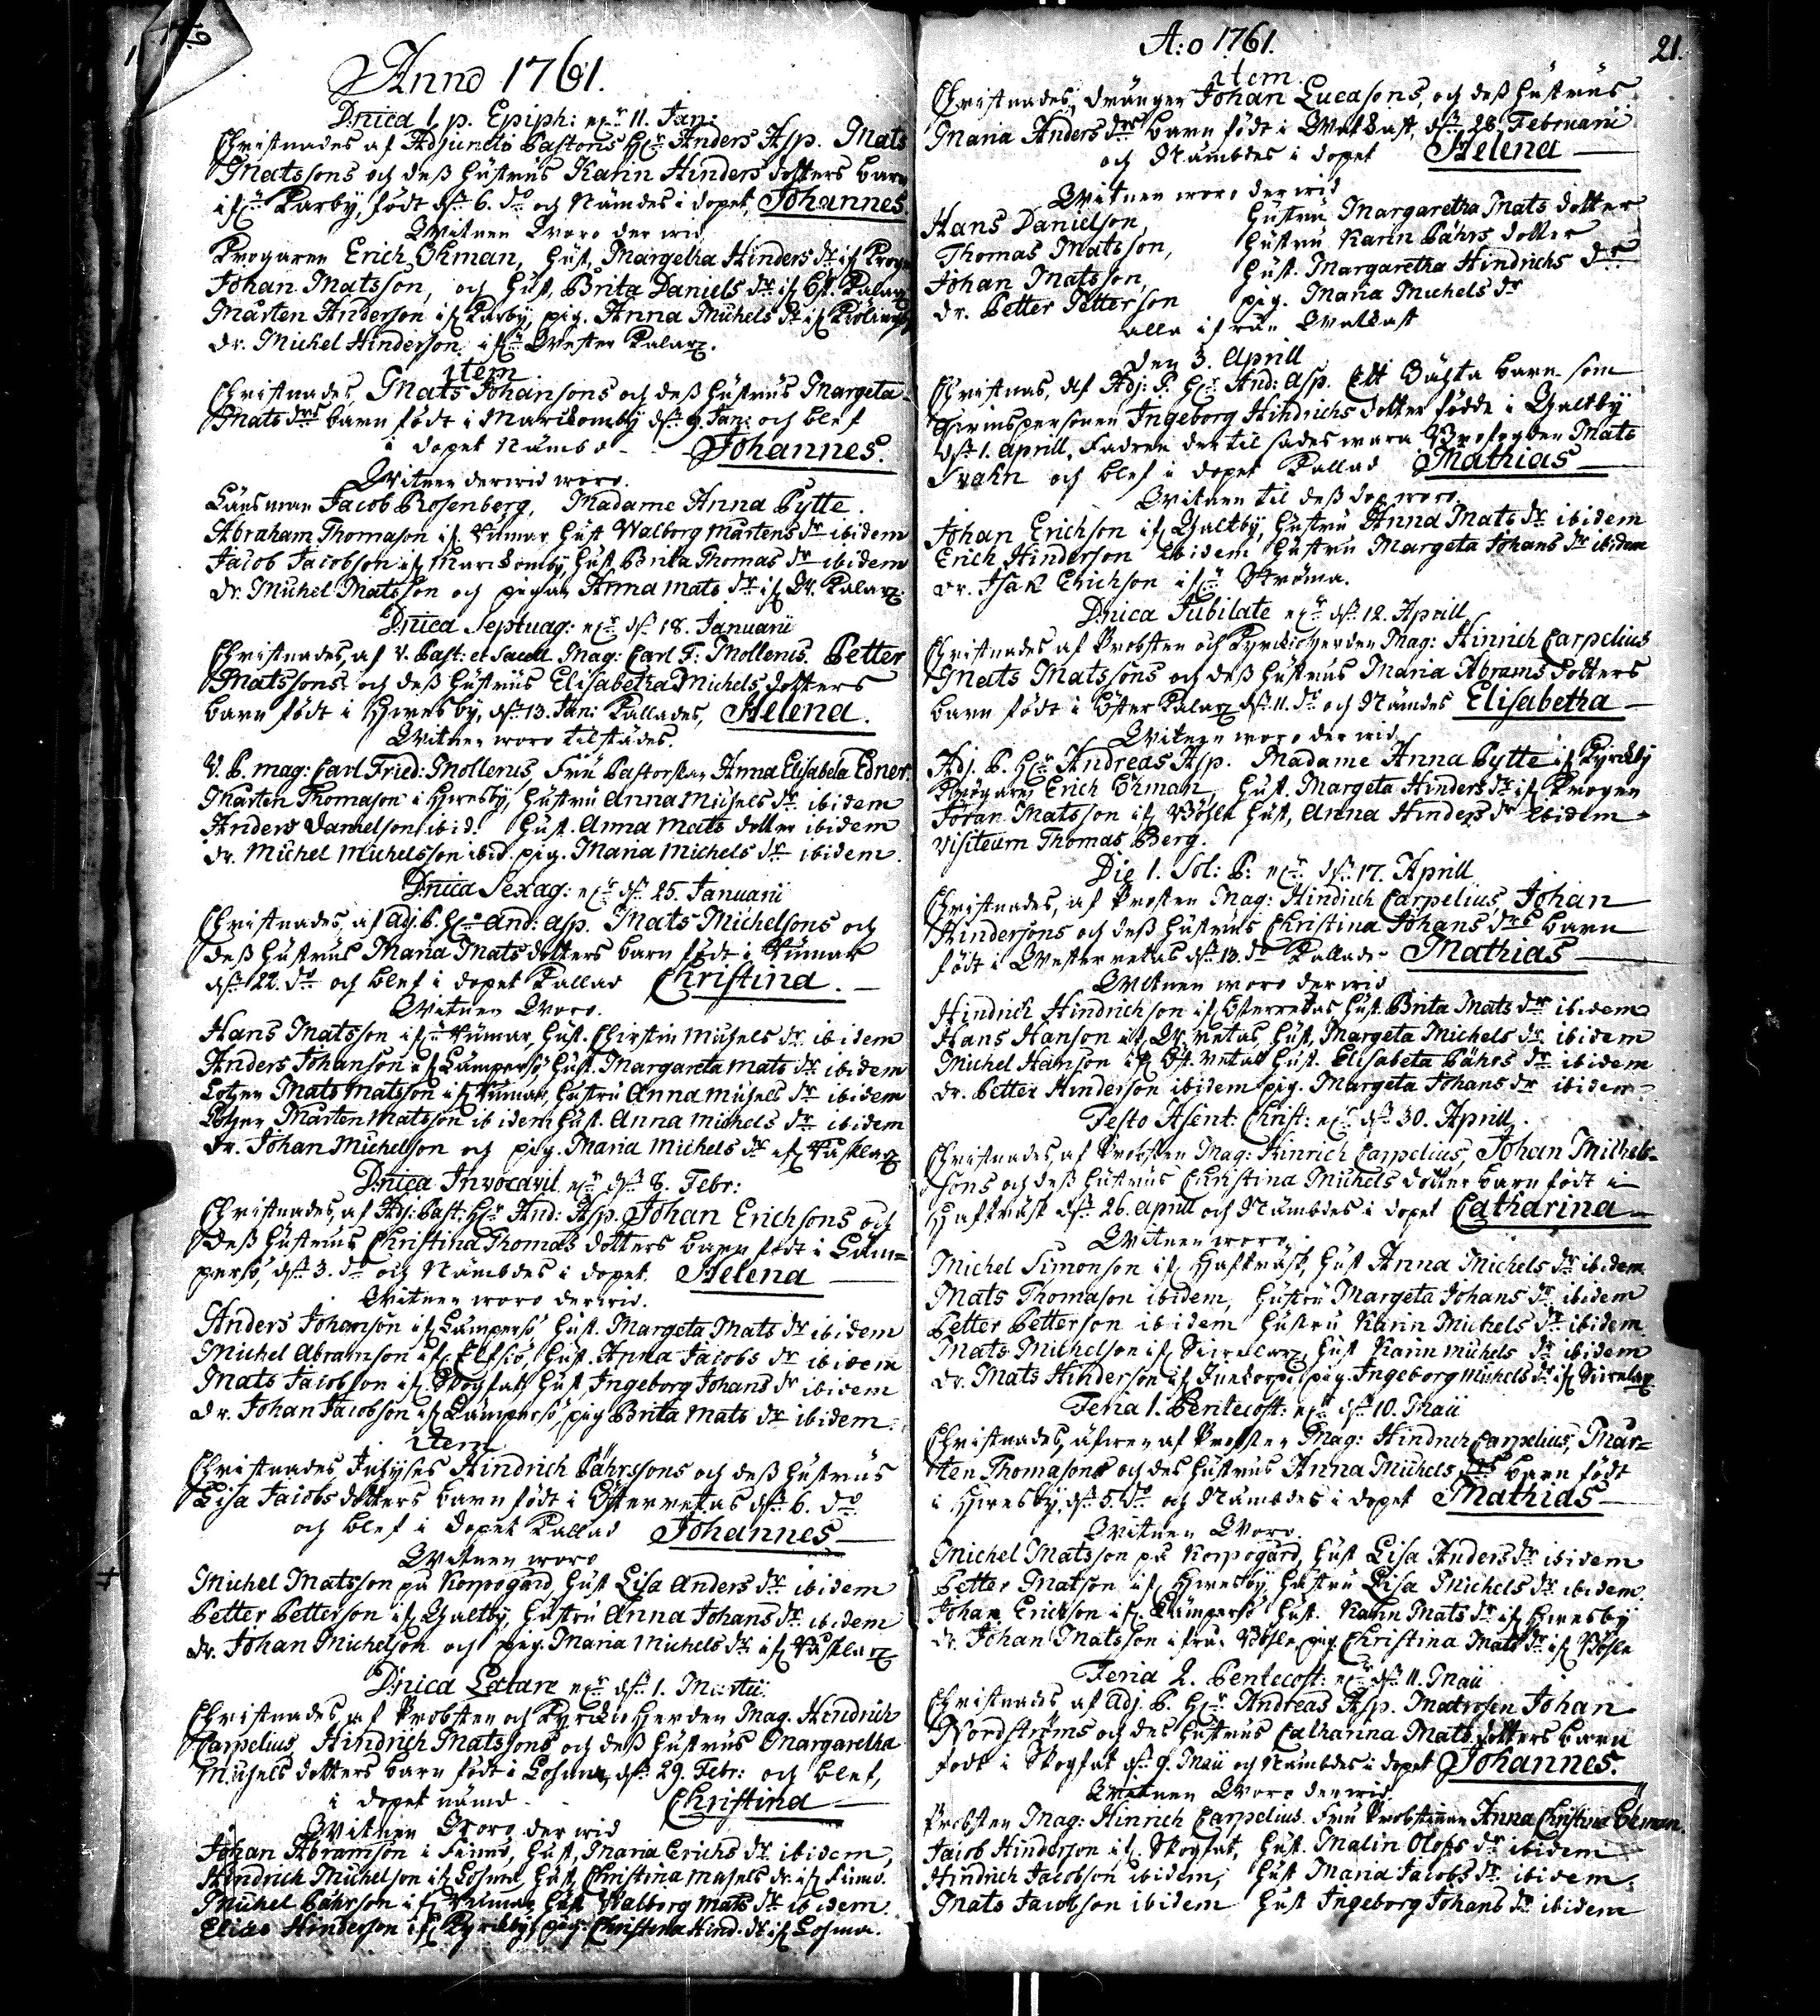 Anno 1761.
Dnica 1. p. Epiph: 11. Jan:
Christnades af Adjuncto Pastoris H:r Anders Asp. Mats
Matssons och deß hustrus Karin Hinders dotters barn
Karby, födt d. 6. d:o och Nämdes i dopet, Johannes
Witnen Woro der wid
Krögaren Erich Öhman, hust. Margetha Hinders d:r
Johan Matsson, och hust. Brita Daniels d:r
Mårten Anderson if Karby, pig. Anna Michels d:r
dr. Michel Hinderson Wester Kalax.
item
Christnades, Mats Johansons och deß hustrus Margeta
Mats d:rs barn födt i Mariskomby d. 9. Jan: och blef
i dopet nämbd - Johannes.
Witnen derwid woro.
Länsman Jacob Rosenberg, Madame Anna Pytte.
Abraham Thomason if hust Walborg Mårtens d:r ibidem
Jacob Jacobson if hust Brita Thomas d:r ibidem
dr. Michel Matsson och pigan Anna Mats d:r if W. Kalax.
Dnica Septuag: d. 18. Januarii
Christnades, af V. Past: et Sacell. Mag: Carl F: Mollerus. Petter
Matssons och deß hustrus Elisabetha Michels dotters
barn födt i Hwesby, d. 13. Jan: Kallades, Helena.
Witnen woro tilstädes.
V. P. Mag: Carl Fried: Mollerus, Fru Pastorskan Anna Elisabeta Edner.
Mårten Thomason i Hwesby, hustru Anna Michels d:r ibidem
Anders Danielson ibid: hust. Anna Mats dotter ibidem
dr. Michel Michelsson ibid. pig. Maria Michels d:r ibidem.
Dnica Sexag: d. 25. Januarii
Christnades, af Adj. P. H:r And: Asp. Mats Michelsons och
deß hustrus Maria Mats dotters barn födt i
d. 22. d:o och blef i dopet Kallad Christina.
Witnen Woro.
Hans Matsson hust. Chirstin Michels d:r ibidem
Anders Johanson if Lampersö, hust. Margareta Mats d:r ibidem
Lotzen Mats Matsson if hustru Anna Michels d:r ibidem
Lotzen Mårten Matsson ibidem hust. Anna Michels d:r ibidem
dr. Johan Michelsson och pig. Maria Michels d:r
Dnica Invocavit d. 8. Febr:
Christnades, af Adj: Past: H:r And: Asp. Johan Erichsons och
deß hustrus Christina Thomas dotters barn födt i Lam=
persö, d. 3. d:o och Nämbdes i dopet. Helena
Witnen woro derwid.
Anders Johanson if Lampersö, hust. Margeta Mats d:r ibidem
Michel Abramson if Elfsiö, hust. Anna Jacobs d:r ibidem
Mats Jacobson if Skogfat, hust, Ingeborg Johans d:r ibidem
dr. Johan Jacobson if Lampersö, pig Brita Mats d:r ibidem
item
Christnades Inhyses Hindrich Påhrssons och deß hustrus
Lisa Jacobs dotters barn födt i Österretas d. 6. d:o
och blef i dopet Kallad Johannes
Witnen woro
Michel Matsson på Korpogård, hust Lisa Anders d:r ibidem
Petter Petterson if Galtby, hustru Anna Johans d:r ibidem
dr. Johan Michelson och pig. Maria Michels d:r
Dnica Lætare d. 1. Martii.
Christnades, af Probsten och Kyrkioherden Mag. Hindrich
Carpelius Hindrich Matssons och deß hustrus Margaretha
Michels dotters barn födt i Losma, d. 29. Febr: och blef,
i dopet nämd - Christina
Witnen Woro der wid
Johan Abramson i Finnö, hust, Maria Erichs d:r ibidem,
Hindrich Michelson if Losma, hust. Christina Michels dr. if Finnö.
Michel Påhrson if hust Walborg Mats d:r ibidem.
Elias Hinderson if Kyrkby, pig: Christina Hind. d:r if Losma.
A:o 1761.
21.
item.
Christnades, drängen Johan Lucasons, och deß hustrus
Maria Anders d:rs barn födt i Wattkast, d. 28. Februarii
och Nämbdes i dopet Helena
Witnen woro der wid
Hans Danielson, hustru Margaretha Mats dotter
Thomas Matsson, hustru Karin Påhrs dotter
Johan Matsson, hust. Margaretha Hindrichs d:r
dr. Petter Petterson pig. Maria Michels d:r
alla ifrån Wattkast
den 3. Aprill
Christnas, af Adj: P. H:r And: Asp. Ett oächta barn som
qwinspersonen Ingeborg Hindrichs dotter födde i Galtby
d. 1. Aprill, Fadren der til sades wara Mats
Svahn och blef i dopet Kallad Mathias
Witnen til deß dop woro.
Johan Erichson if Galtby, hustru Anna Mats d:r ibidem
Erich Hinderson ibidem, hustru Margeta Johans d:r ibidem
dr. Isak Erichson Ströma.
Dnica Jubilate d. 12. Aprill
Christnades af Probsten och Kyrkioherden Mag: Hinrich Carpelius
Mats Matssons och deß hustrus Maria Abrams dotters
barn födt i Öster Kalax d. 11. d:o och Nämdes Elisabetha
Witnen woro der wid
Adj. P. H:r Andreas Asp. Madame Anna Pytte if Kyrkby
Krögaren Erich Öhman, hust. Margeta Hinders d:r if Krogen
Johan Matsson if hust, Anna Hinders d:r ibidem
Visiteurn Thomas Berg.
Die 1. Sol: P: d. 17. Aprill
Christnades, af Prosten Mag: Hindrich Carpelius, Johan
Hindersons och deß hustrus Christina Johans d:rs barn
födt i Westerretas d. 13. d:o Kallad - Mathias
Witnen woro der wid
Hindrich Hindrichson if Österretas hust. Brita Mats d:r ibidem
Hans Hanson if W. retas, hust, Margeta Michels d:r ibidem
Michel Hanson if Öst. retas hust. Elisabeta Påhrs d:r ibidem
dr. Petter Hinderson ibidem pig. Margeta Johans d:r ibidem
Festo Asent: Christ: d. 30. Aprill.
Christnades, af Probsten Mag: Hinrich Carpelius, Johan Michel=
sons och deß hustrus Christina Michels dotter barn födt i
Hafträsk d. 26. Aprill och Nämbdes i dopet Catharina
Witnen woro.
Michel Simonson if Hafträsk, hust Anna Michels d:r ibidem
Mats Thomason ibidem, hustru Margeta Johans d:r ibidem
Petter Petterson ibidem hustru Karin Michels d:r ibidem
Mats Michelson if hust Karin Michels d:r ibidem
dr. Mats Hinderson if pig. Ingeborg Michels d:r
Feria 1. Pentecost: d. 10. Maii
Christnades, äfwen af Probsten Mag: Hindrich Carpelius, Mår=
ten Thomasons och des hustrus Anna Michels d:rs barn födt
i Hwesby, d. 5. d:o och Nämbdes i dopet Mathias
Witnen Woro.
Michel Matsson på Korpogård, hust Lisa Anders d:r ibidem
Petter Matson if Hwesby, hustru Lisa Michels d:r ibidem
Johan Erickson if Lampersö hust. Karin Mats d:r if Hwesby
dr. Johan Matsson ifrån pig. Christina Mats d:r
Feria 2. Pentecost: d. 11. Maii
Christnades af Adj. P. H:r Andreas Asp. Matrosen Johan
Nordströms och des hustrus Catharina Mats dotters barn
födt i Skogfat d. 9. Maii och Nämbdes i dopet Johannes.
Witnen Woro der wid
Probsten Mag: Hinrich Carpelius. Fru Probstinnan Anna Christina Ekman.
Jacob Hinderson if Skogfat, hust. Malin Olofs d:r ibidem
Hindrich Jacobson ibidem, hust Maria Jacobs d:r ibidem.
Mats Jacobson ibidem hust Ingeborg Johans d:r ibidem